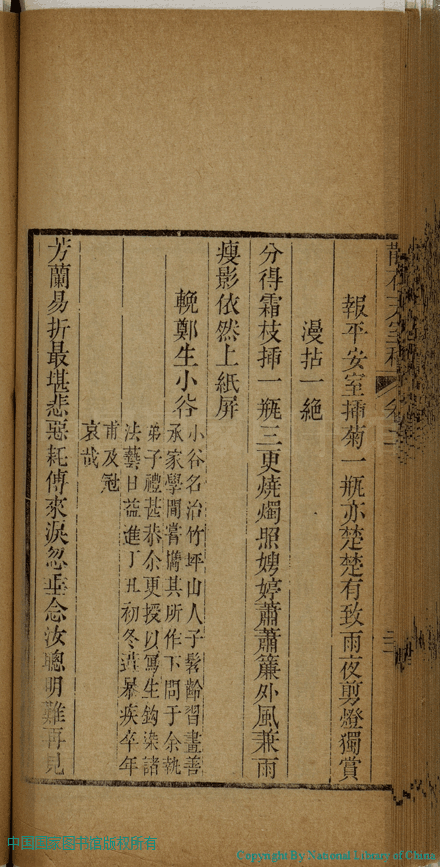 報平安室揷菊一瓶亦楚楚有致雨夜剪燈獨賞
漫拈一絶
分得霜枝揷一瓶三更燒燭照娉婷蕭蕭簾外風兼雨
瘦影依然上紙屏
輓鄭生小谷
小谷名治竹坪山人子髫齡習畫善
承家學間嘗攜其所作下問于余執
弟子禮甚恭余更授以寫生鈎染諸
法藝日益進丁丑初冬遘暴疾卒年
甫及冠
哀哉
芳蘭易折最堪悲惡耗傳來淚忽垂念汝聰明難再見
中国国家图书馆版权所有
Copyright By National Library of China